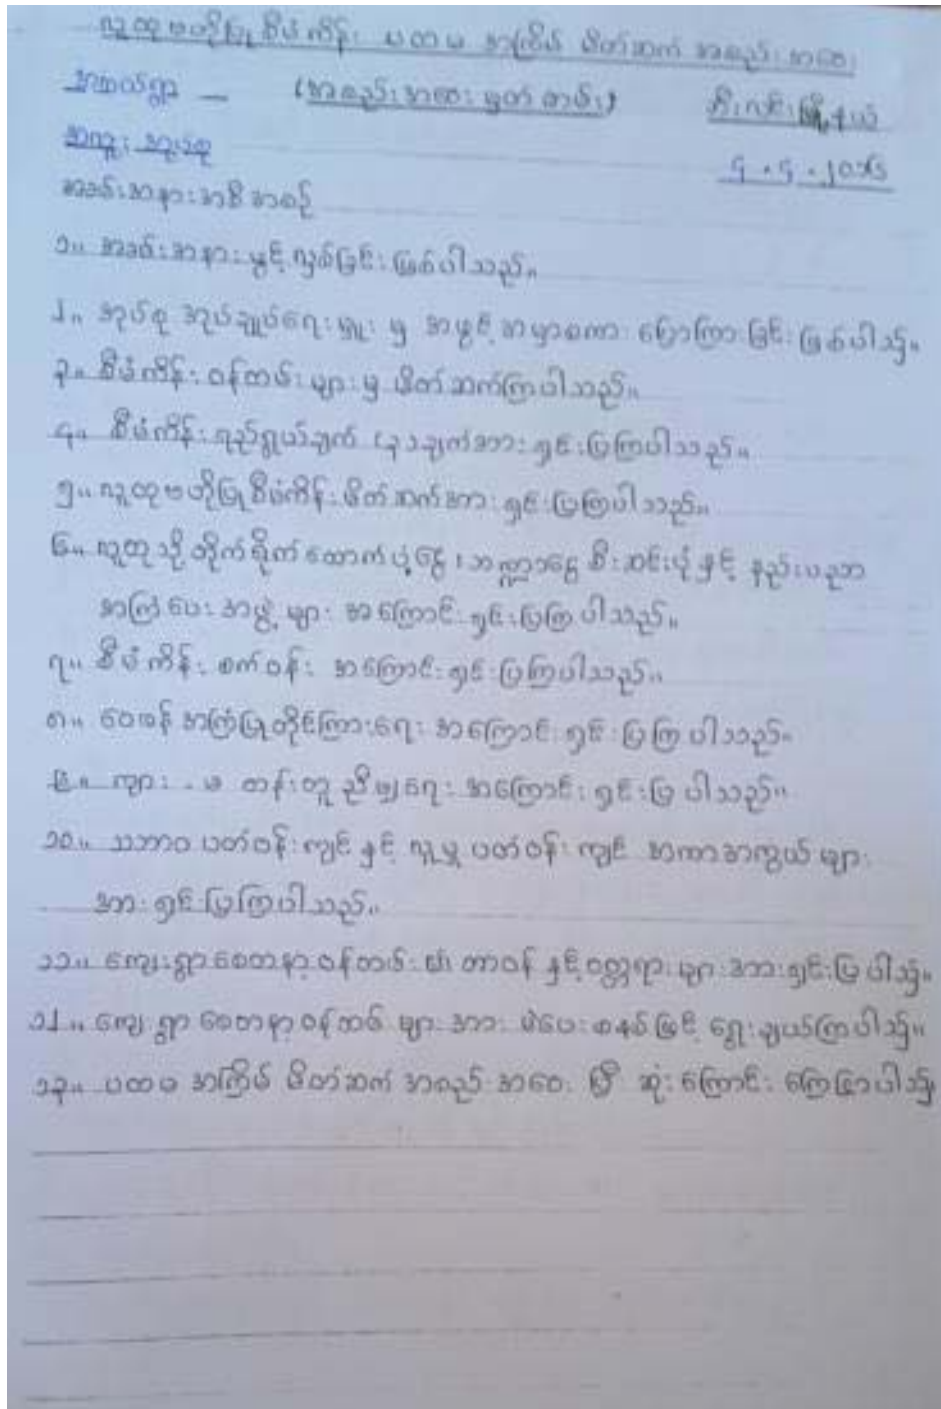 လူထုဗဟိုပြုစီမံကိန်း ပထမ အကြိမ် မိတ်ဆက် အစည်းအဝေး
(အစည်းအဝေး မှတ်တမ်း) ဘီးလင်းမြို့နယ်
အခမ်းအနားအစီအစဉ်
၁။ အခမ်းအနား ဖွင့်လှစ်ခြင်းဖြစ်ပါသည်။
၂။ အုပ်စု အုပ်ချုပ်ရေးမှူး မှ အဖွင့် အမှာစကား ပြောကြားခြင်း ဖြစ်ပါသည်။
၃။ စီမံကိန်း ဝန်ထမ်းများ မှ မိတ်ဆက်ကြပါသည်။
၄။ စီမံကိန်း ရည်ရွယ်ချက် (၃)ချက်အား ရှင်းပြကြပါသည်။
၅။ လူထုဗဟိုပြုစီမံကိန်း မိတ်ဆက်အား ရှင်းပြကြပါသည်။
၆။ လူထုသို့ တိုက်ရိုက်ထောက်ပံ့ငွေ ၊ ဘဏ္ဍာငွေ စီးဆင်းပုံ နှင့် နည်းပညာ
အကြံပေးအဖွဲ့များ အကြောင်း ရှင်းပြကြပါသည်။
၇။ စီမံကိန်း စက်ဝန်း အကြောင်း ရှင်းပြကြပါသည်။
၈။ ဝေဖန် အကြံပြု တိုင်ကြားရေး အကြောင်း ရှင်းပြကြပါသည်။
၉။ ကျား - မ တန်းတူ ညီမျှရေး အကြောင်း ရှင်းပြပါသည်။
၁၀။ သဘာဝ ပတ်ဝန်းကျင် နှင့် လူမှု ပတ်ဝန်းကျင် အကာအကွယ် များ
အား ရှင်းပြကြပါသည်။
၁၁။ ကျေးရွာစေတနာ့ဝန်ထမ်း ၏ တာဝန် နှင့် ဝတ္တရား များအား ရှင်းပြပါသည်။
၁၂။ ကျေးရွာ စေတနာ့ဝန်ထမ်း များအား မဲပေးစနစ်ဖြင့် ရွေးချယ်ကြပါသည်။
၁၃။ ပထမ အကြိမ် မိတ်ဆက် အစည်းအဝေး ပြီးဆုံးကြောင်း ကြေငြာပါသည်။